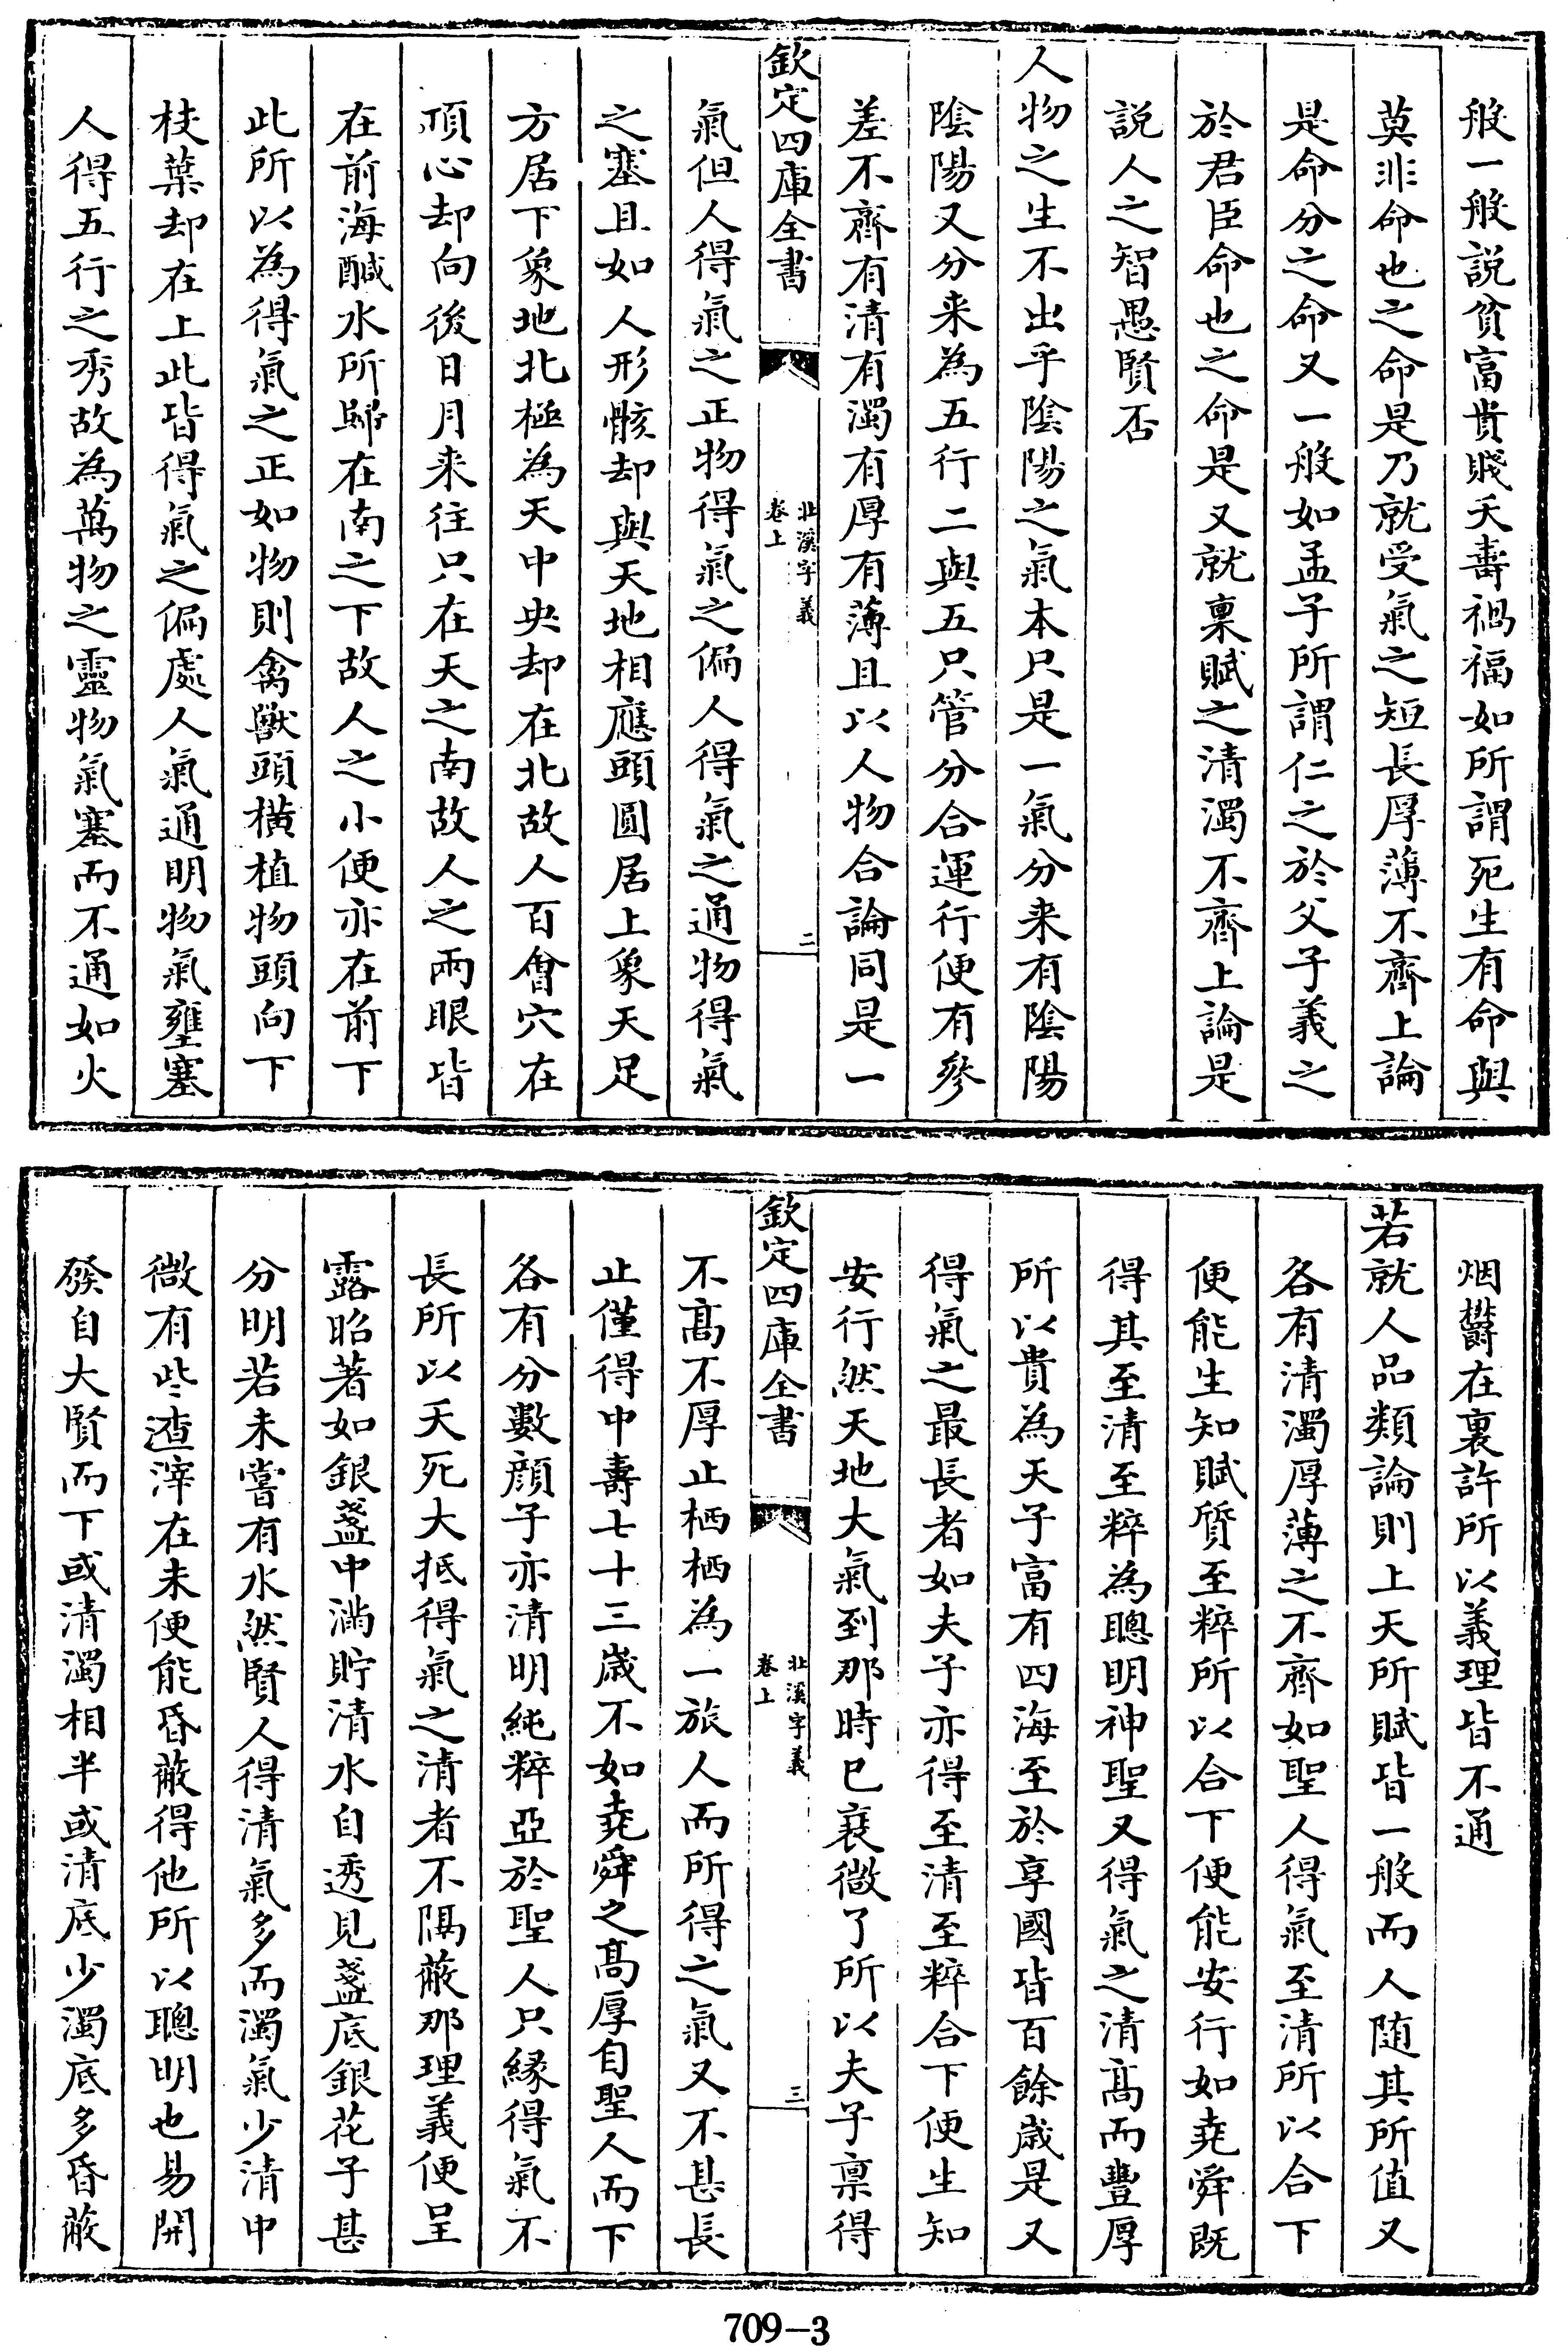 般一般説貧富貴賤夭壽禍福如所謂死生有命與
莫非命也之命是乃就受氣之短長厚薄不齊上論
是命分之命又一般如孟子所謂仁之於父子義之
於君臣命也之命是又就稟賦之清濁不齊上論是
説人之智愚賢否
人物之生不出乎陰陽之氣本只是一氣分来有陰陽
陰陽又分来為五行二與五只管分合運行便有參
差不齊有清有濁有厚有薄且以人物合論同是一
欽定四庫全書
北溪字義
卷上
二
氣但人得氣之正物得氣之偏人得氣之通物得氣
之塞且如人形骸却與天地相應頭圓居上象天足
方居下象地北極為天中央却在北故人百會穴在
頂心却向後日月来往只在天之南故人之兩眼皆
在前海鹹水所歸在南之下故人之小便亦在前下
此所以為得氣之正如物則禽獸頭橫植物頭向下
枝葉却在上此皆得氣之偏處人氣通明物氣壅塞
人得五行之秀故為萬物之靈物氣塞而不通如火
烟欝在裏許所以義理皆不通
若就人品類論則上天所賦皆一般而人随其所值又
各有清濁厚薄之不齊如聖人得氣至清所以合下
便能生知賦質至粹所以合下便能安行如堯舜既
得其至清至粹為聰明神聖又得氣之清髙而豐厚
所以貴為天子富有四海至於享國皆百餘歲是又
得氣之最長者如夫子亦得至清至粹合下便生知
安行然天地大氣到那時已衰微了所以夫子稟得
欽定四庫全書
北溪字義
卷上
三
不髙不厚止栖栖為一旅人而所得之氣又不甚長
止僅得中壽七十三歲不如堯舜之髙厚自聖人而下
各有分數顔子亦清明純粹亞於聖人只縁得氣不
長所以夭死大抵得氣之清者不隔蔽那理義便呈
露昭著如銀盞中滿貯清水自透見盞底銀花子甚
分明若未嘗有水然賢人得清氣多而濁氣少清中
微有些渣滓在未便能昏蔽得他所以聰明也易開
發自大賢而下或清濁相半或清底少濁底多昏蔽
709-3